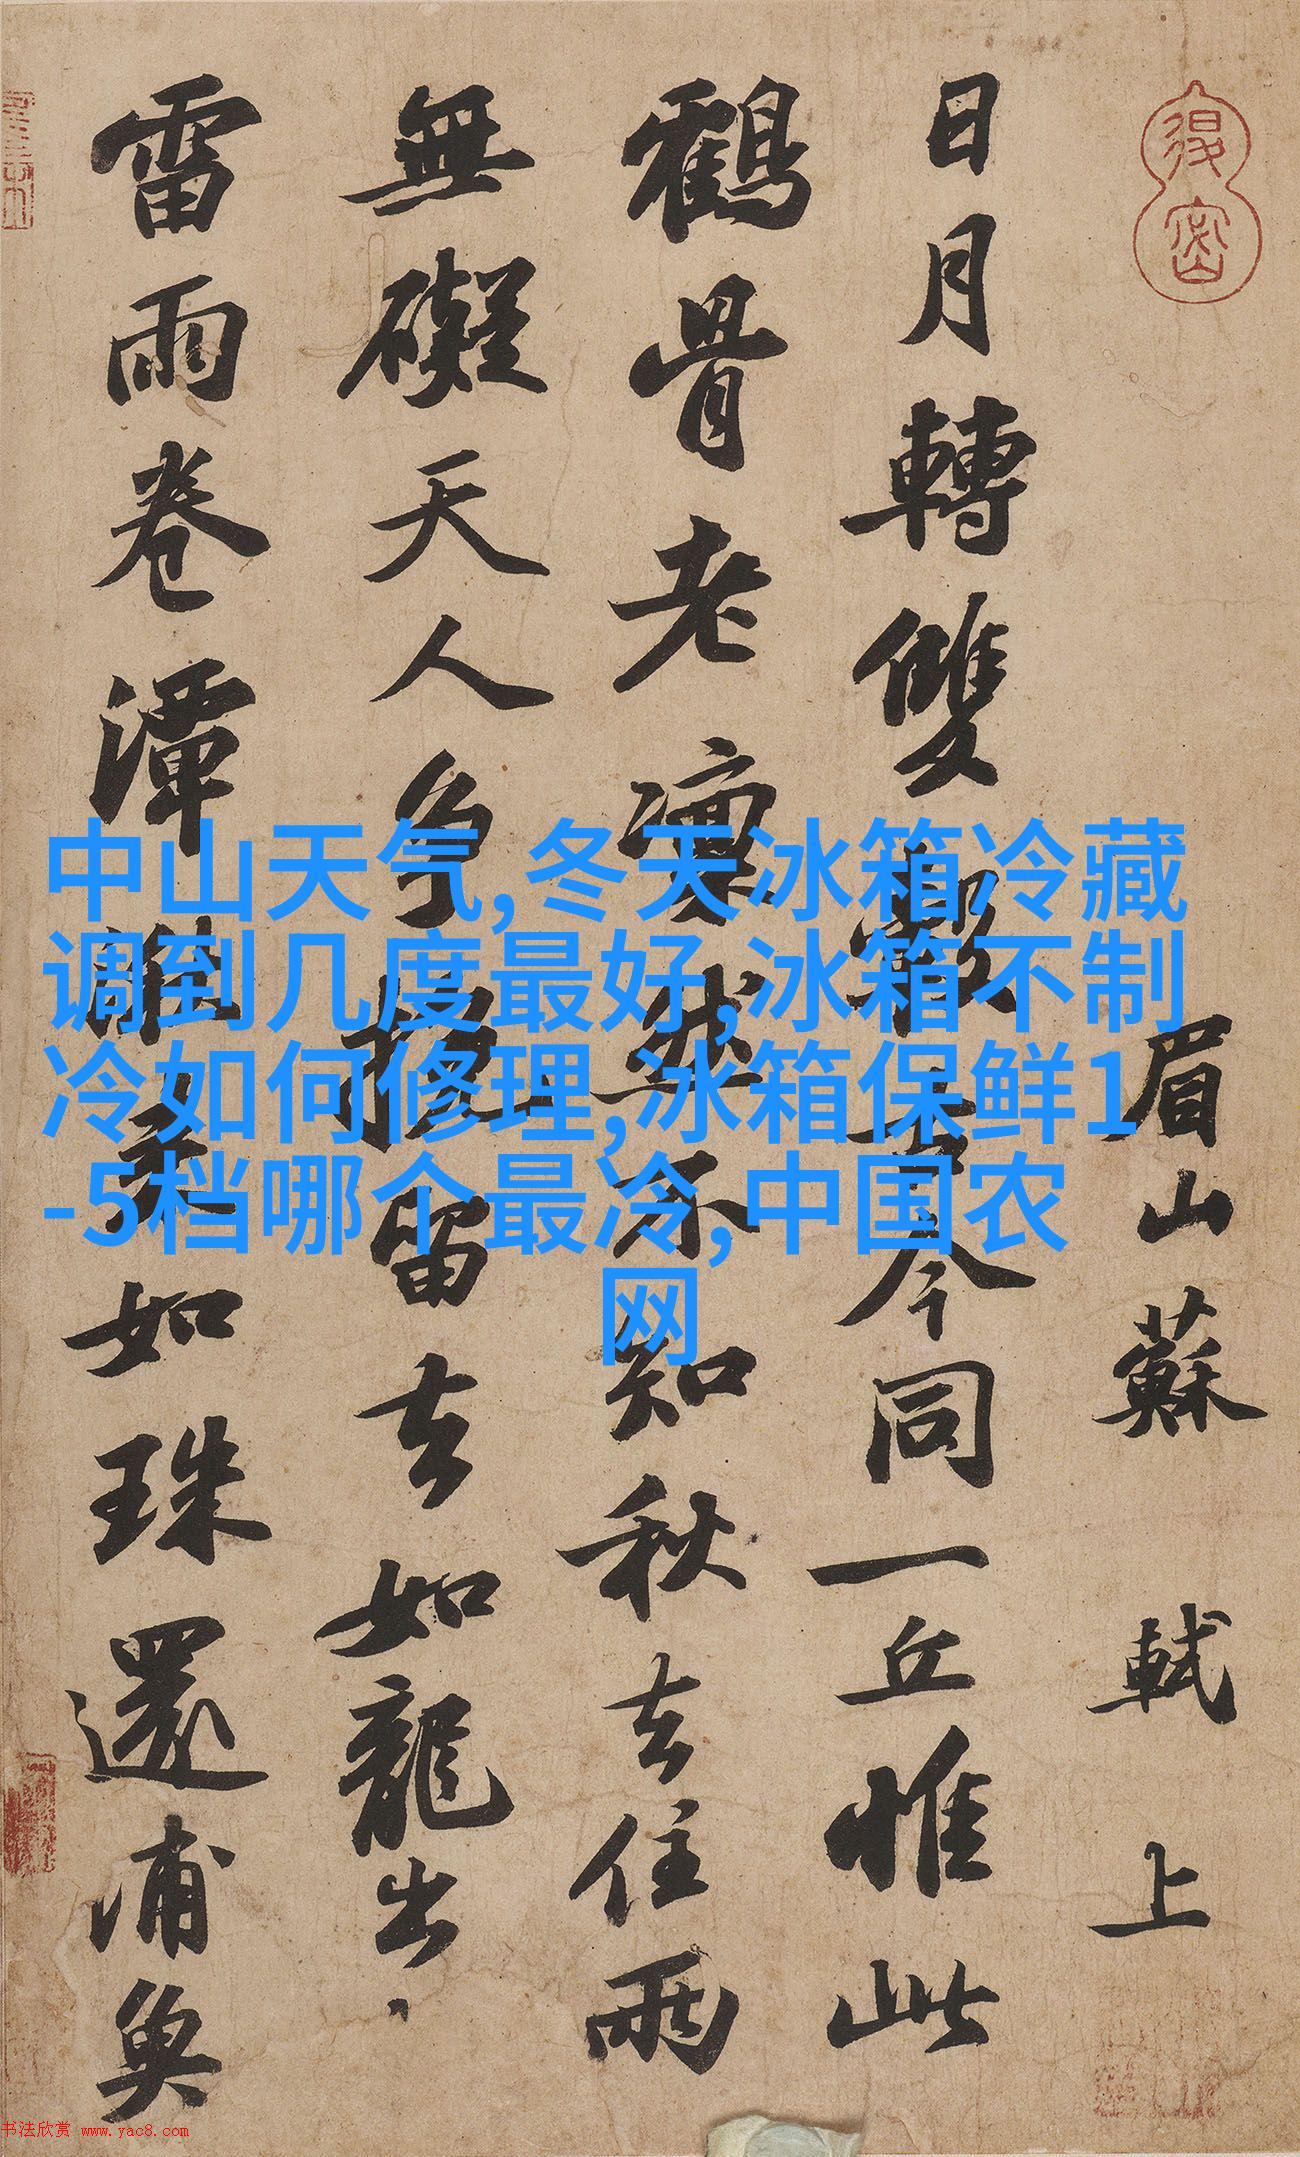 眉山蘇軾上
日月轉雙轂古今同一丘惟此
鶴骨老凜然不知秋去住兩
無礙天人争挽留去如龍出
雷雨卷潭湫來如珠還浦魚
中山天气,冬天冰箱冷藏
调到几度最好,冰箱不制
冷如何修理,冰箱保鲜1
-5档哪个最冷,中国农
网
书法欣赏 www.yac8.com